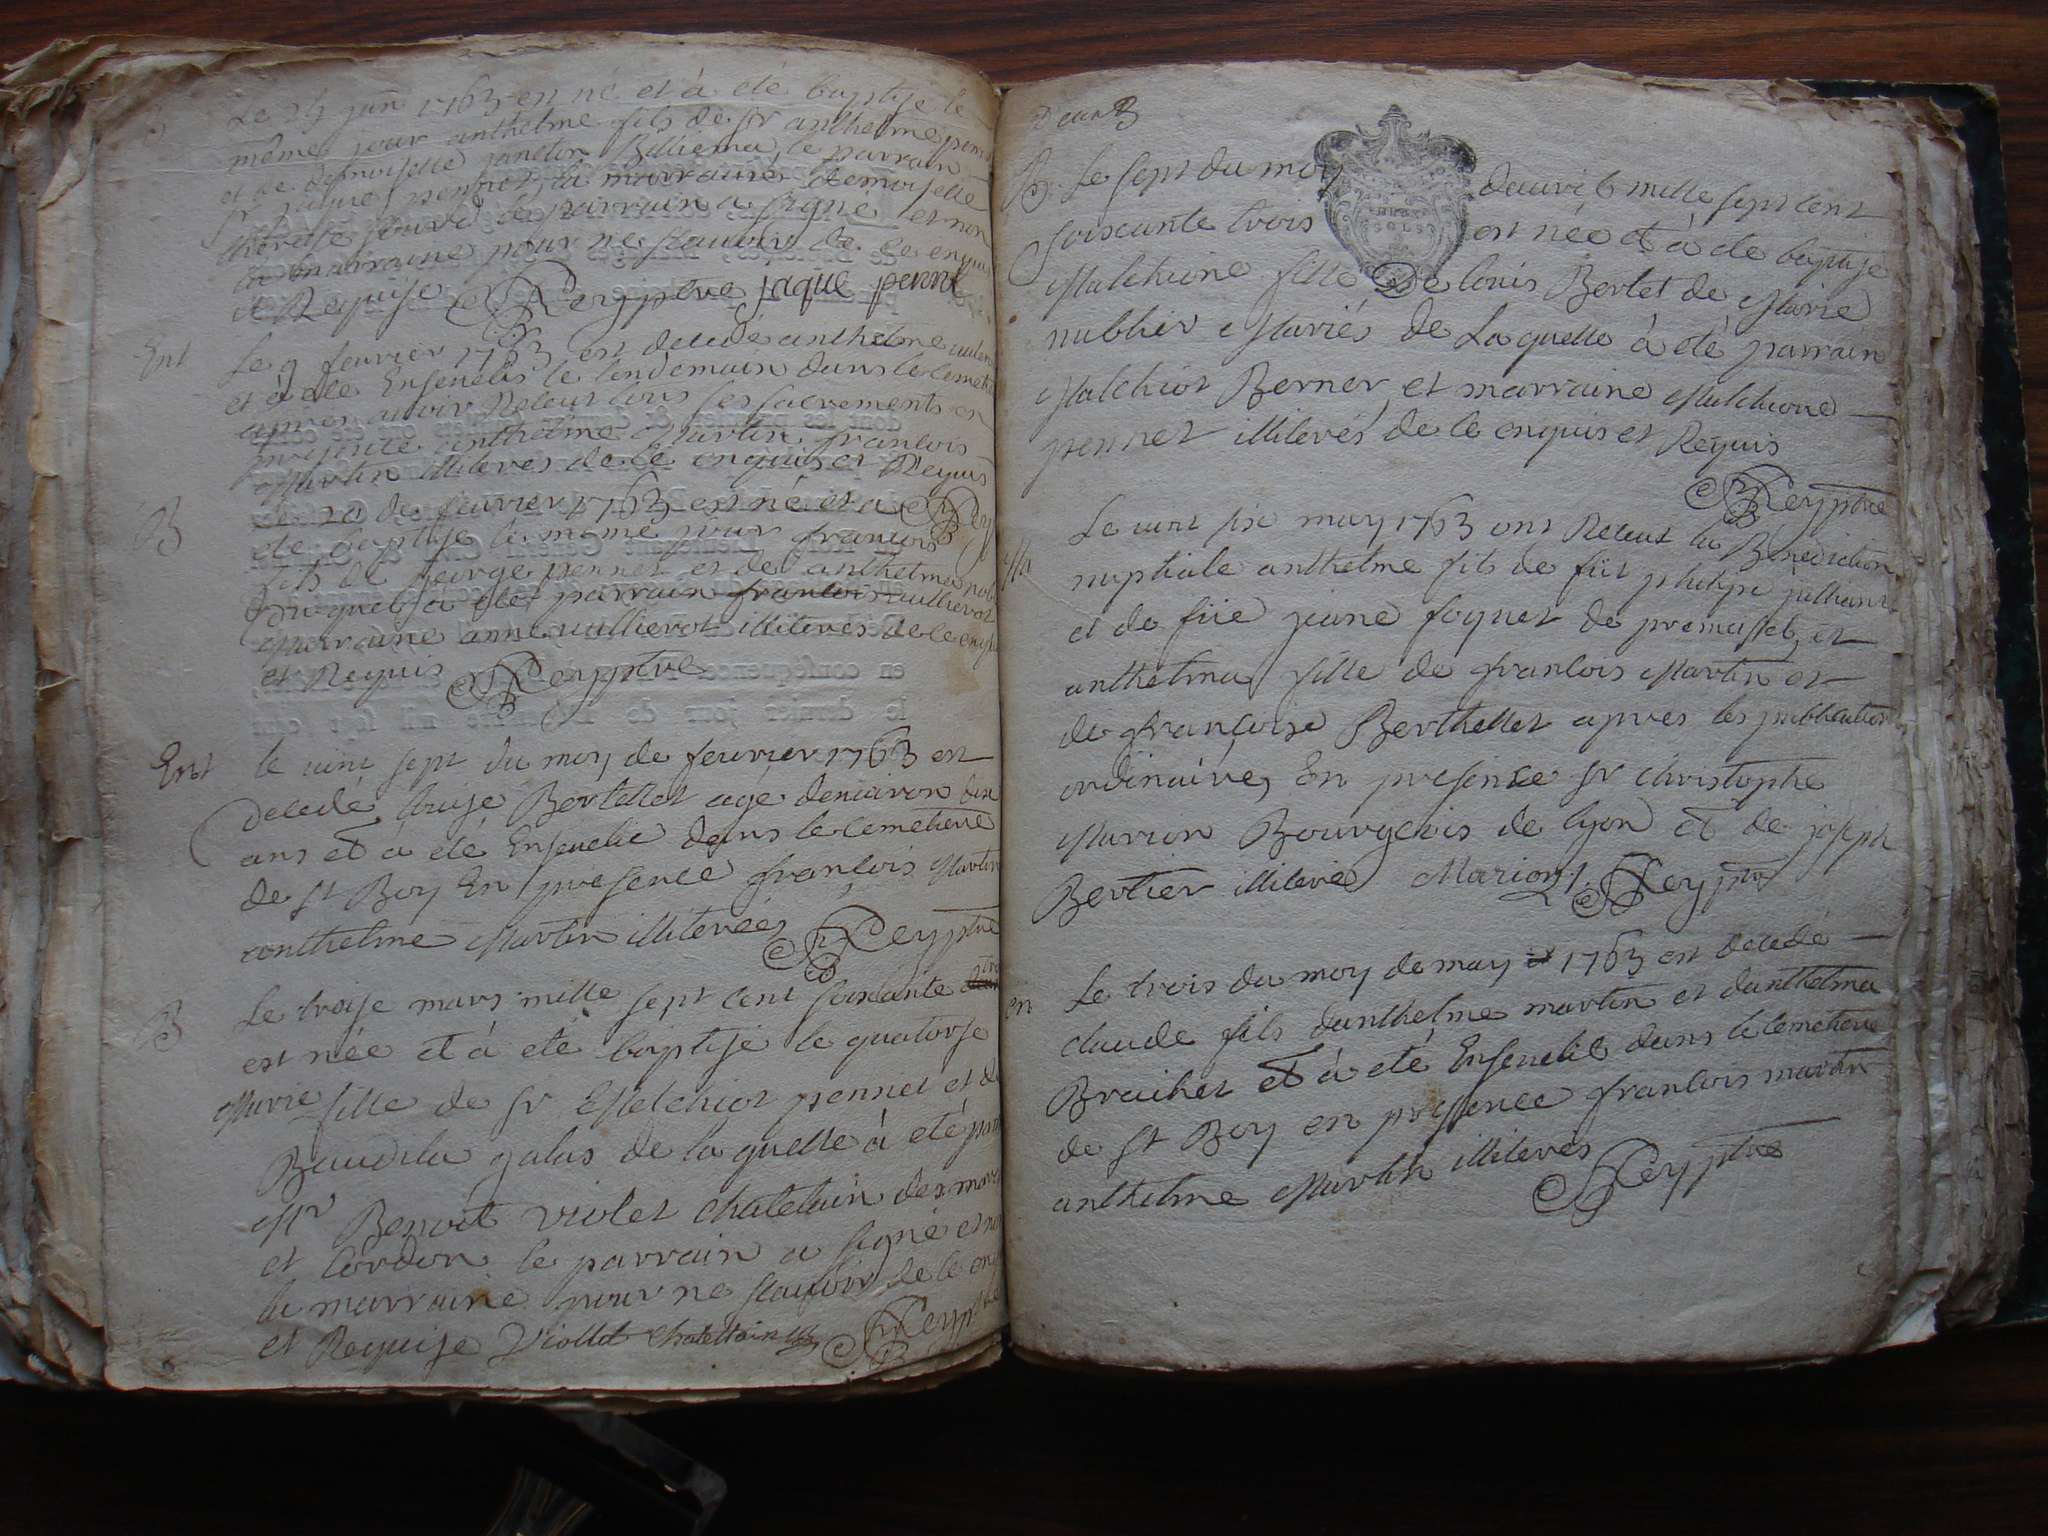 Le 25 juin 1763 est né et à eté baptisé le
même jour anthelme fils de Sr anthelme penn
et de demoiselle janeton Billiema le parrain
Sr jaque pennet la marraine demoiselle
le parrain a signé et non
la marraine pour ne sçauoir de ce enqui
et Requise Rey ptre jaque penne
Ent Le 9 feurier 1763 est decedé anthelme
et à eté Enseuelis le lendemain dans le cemetie
apres auoir Receut tous ses sacrements en
presence anthelme Martin francois
Martin illiteres de ce enquis et Requis
Rey
B Le 20 de feurier 1763 est né et a
eté baptisé le même jour francois
fils de george pennet et de anthelma
Duquel a eté parrain francois uullierot
Marraine anne uullierot illiteres de ce enquis
et Requis Rey ptre
Ent le uint sept du moy de feurier 1763 est
decedé louise Bertellet agé denuiron dix
ans et à eté Enseuelie dans le cemetiere
de St Boy En presence francois Martin
anthelme Martin illiterées Rey ptre
B Le treize mars mille sept cent soixante deux trois
est née et à eté baptisé le quatorse
Marie fille de Sr Melchiot pennet et de
Baudila galas de laquelle à eté parr
Mr Benoit Violet chatelain des mares
et Cordon le parrain a signé et no
la marraine pour ne sçauoir de ce enq
et Requise Viollet chatellain Rey ptre
Deux B
B Le sept du moy dauril mille sept cent
soixante trois est née et à eté baptisé
Malchione fille De louis Bertet de Marie
nublier Mariés de Laquelle à eté parrain
Malchiot Berner et marraine Malchione
pennet illiterés de ce enquis et Requis
Rey ptre
Ma Le uint six may 1763 ont Receut la Benediction
nuptiale anthelme fils de füt philipe julliant
et de füe jeane foquet de premeissel et
anthelma fille de francois Martin et
de francoise Berthellet apres les publication
ordinaires En presence Sr christophe
Marion Bourgeois de lyon et de joseph
Bertier illiteré Marion Rey ptre
en Le trois du moy de may 1763 est decedé
claude fils danthelme martin et danthelma
Braichet et à eté Enseuelit dans le cemetiere
de St Boy en presence francois martin
anthelme Martin illiteres
Rey ptre